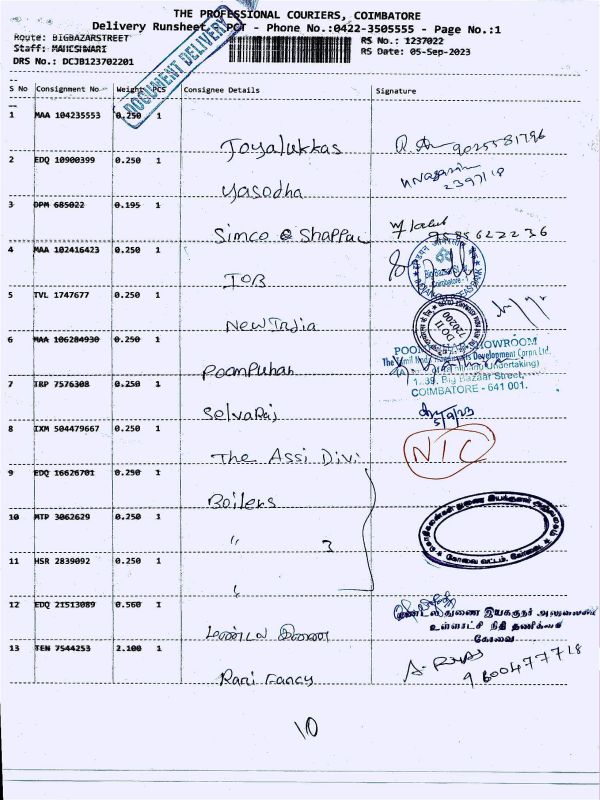 THE PROFESSIONAL COURIERS, COIMBATORE
Delivery Runsheet, PCT - Phone No.:0422-3505555 - Page No.:1
Route: BIGBAZARSTREET
Staff: MAHESHWARI
DRS No.: DCJB123702201
RS No.: 1237022
RS Date: 05-Sep-2023
DOCUMENT DELIVERY
S No Consignment No Weight PCS Consignee Details Signature
1 MAA 104235553 0.250 1 Joyalukkas 9025581796
2 EDQ 10900399 0.250 1 Yasodha
3 OPM 685022 0.195 1 Simco @ Shappal
4 MAA 102416423 0.250 1 IOB
Big Bazaar St.
Coimbatore - 1
INDIAN OVERSEAS BANK
5 TVL 1747677 0.250 1 New India
DO II
720200
6 MAA 106284930 0.250 1 Poompuhar
SHOWROOM
Development Corpn Ltd.
Undertaking)
Big Bazaar Street,
COIMBATORE - 641 001.
7 IRP 7576308 0.250 1 Selvaraj 5/9/23
8 IXM 504479667 0.250 1 The Assi Divi NIC
9 EDQ 16626701 0.250 1 Boilers
10 MTP 3062629 0.250 1 " 3
11 HSR 2839092 0.250 1 "
கோவை வட்டம், கோவை.
12 EDQ 21513089 0.560 1 மண்டல இணை
துணை இயக்குநர் அலுவலகம்
உள்ளாட்சி நிதி தணிக்கை
கோவை
13 TEN 7544253 2.100 1 Rani Fancy 9600477718
10